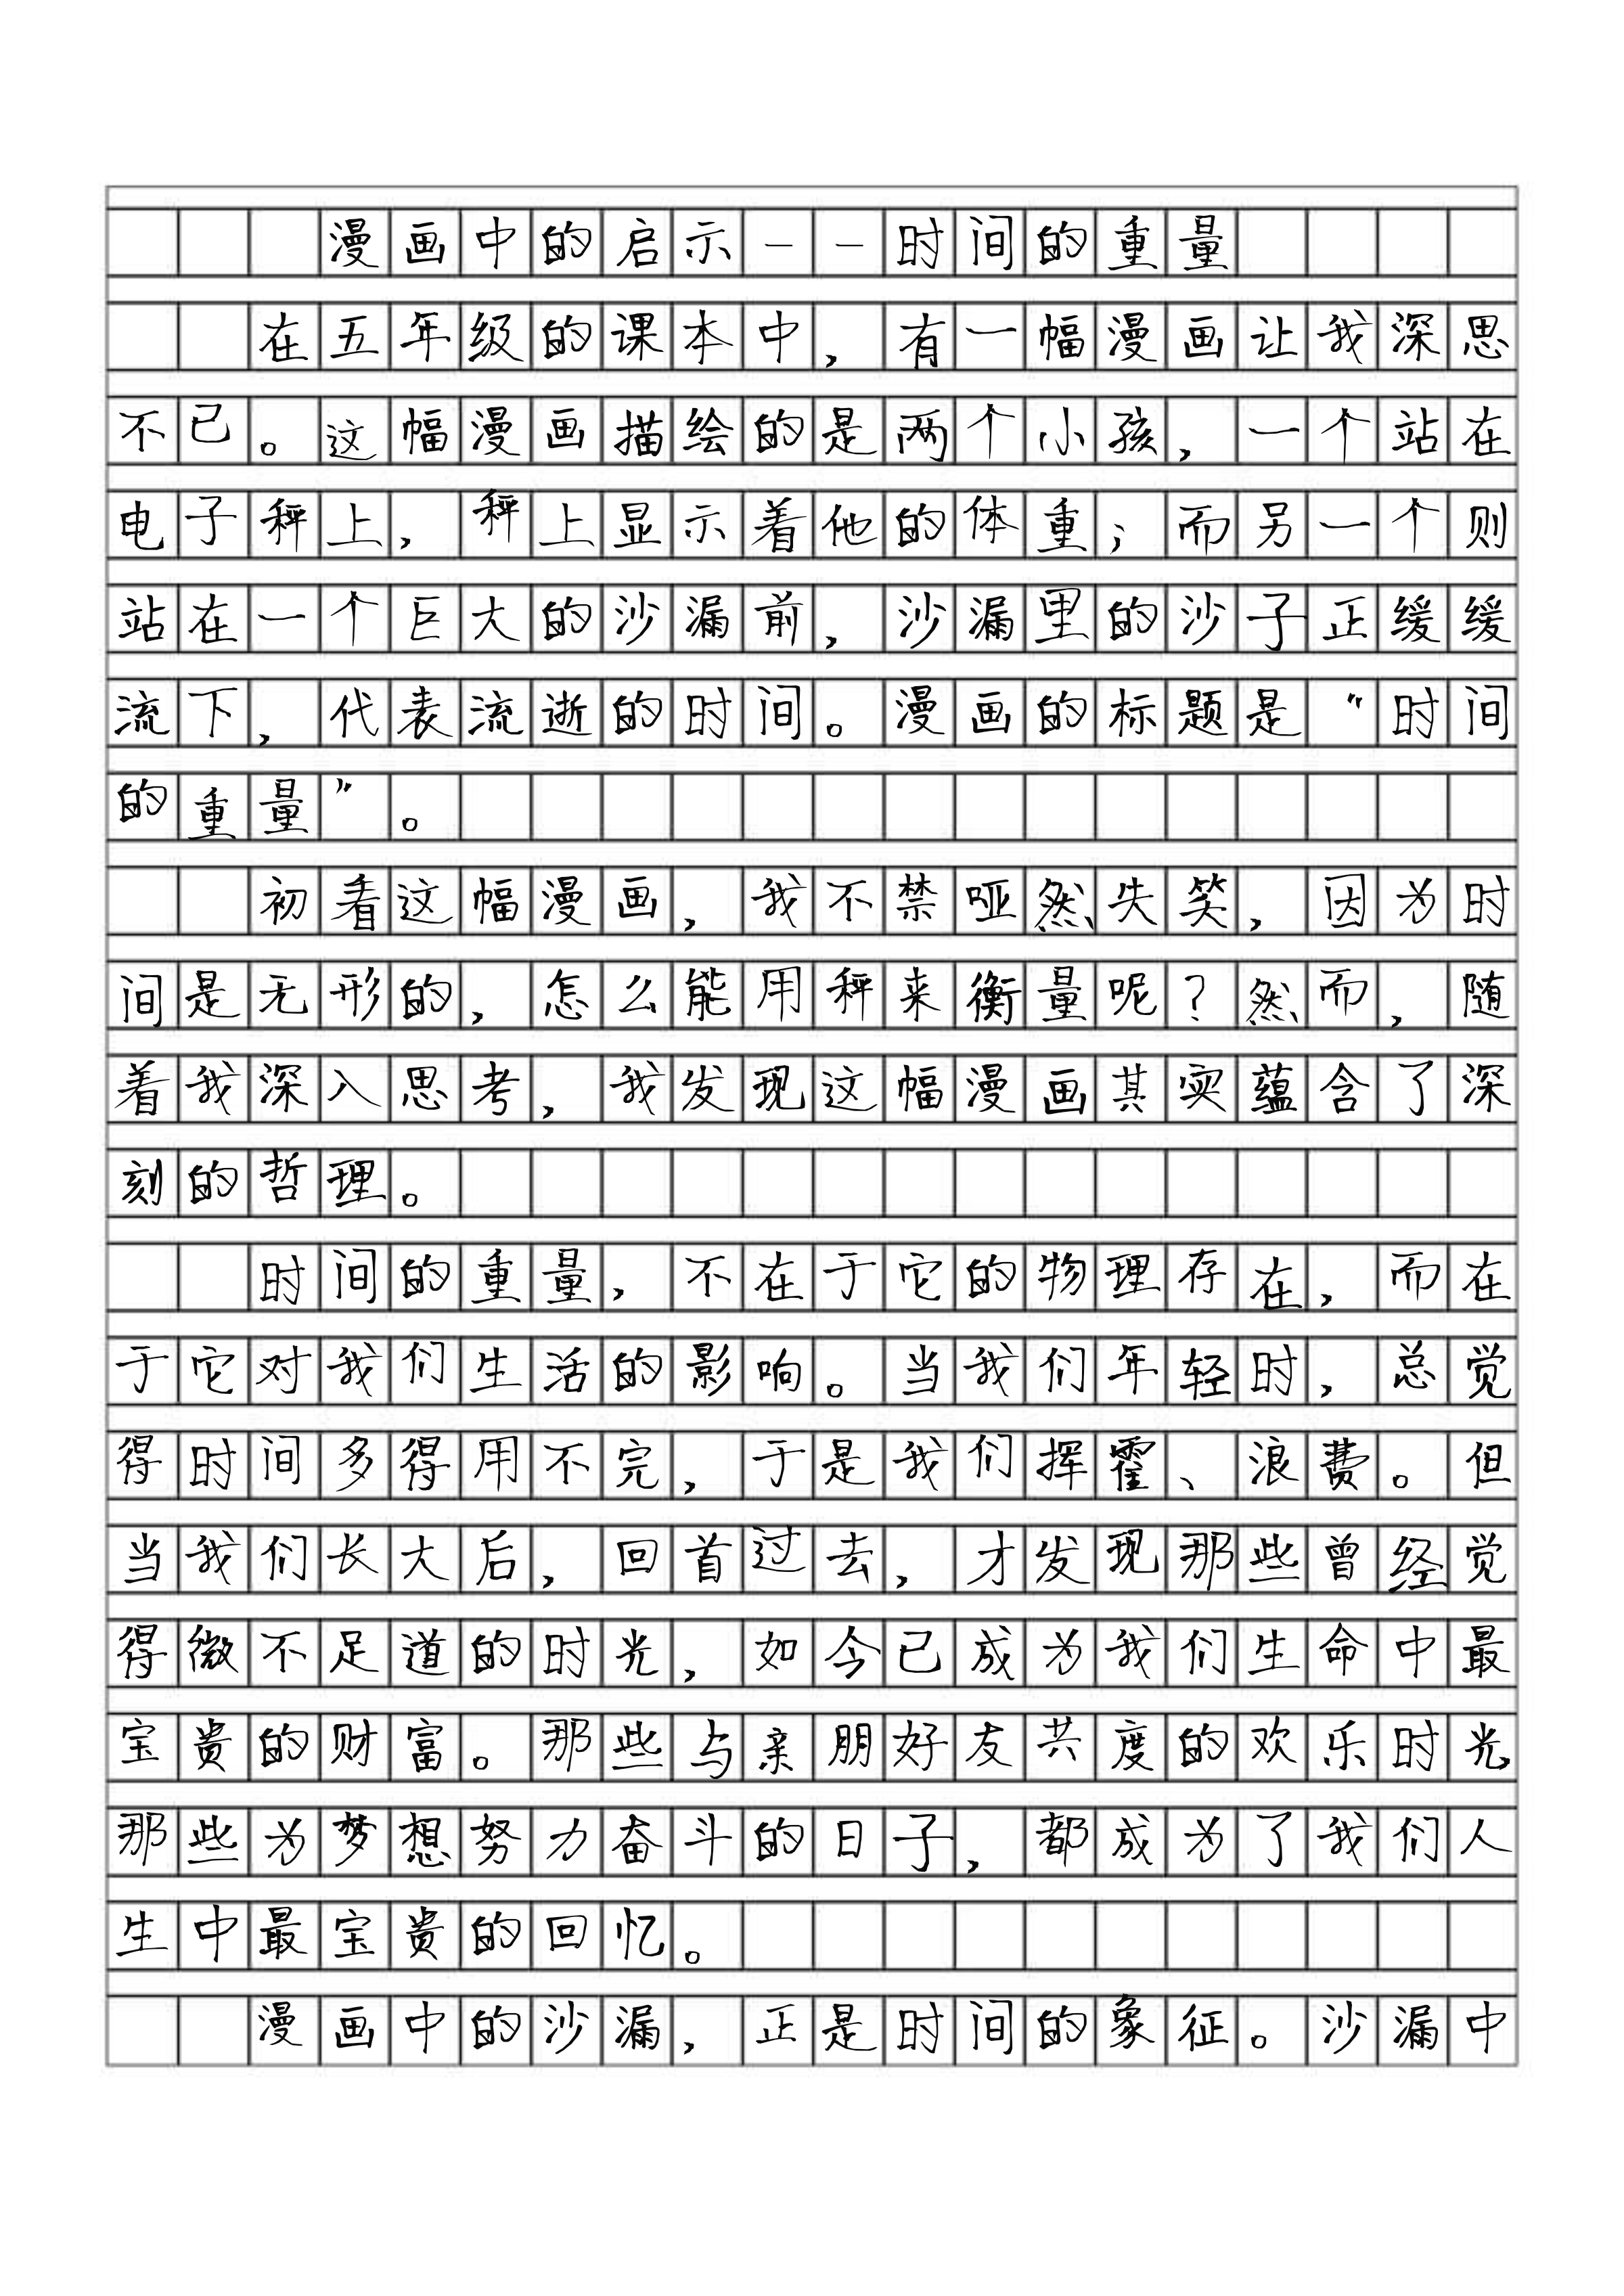 漫画中的启示--时间的重量
在五年级的课本中，有一幅漫画让我深思
不已。这幅漫画描绘的是两个小孩，一个站在
电子秤上，秤上显示着他的体重；而另一个则
站在一个巨大的沙漏前，沙漏里的沙子正缓缓
流下，代表流逝的时间。漫画的标题是“时间
的重量”。
初看这幅漫画，我不禁哑然失笑，因为时
间是无形的，怎么能用秤来衡量呢？然而，随
着我深入思考，我发现这幅漫画其实蕴含了深
刻的哲理。
时间的重量，不在于它的物理存在，而在
于它对我们生活的影响。当我们年轻时，总觉
得时间多得用不完，于是我们挥霍、浪费。但
当我们长大后，回首过去，才发现那些曾经觉
得微不足道的时光，如今已成为我们生命中最
宝贵的财富。那些与亲朋好友共度的欢乐时光，
那些为梦想努力奋斗的日子，都成为了我们人
生中最宝贵的回忆。
漫画中的沙漏，正是时间的象征。沙漏中